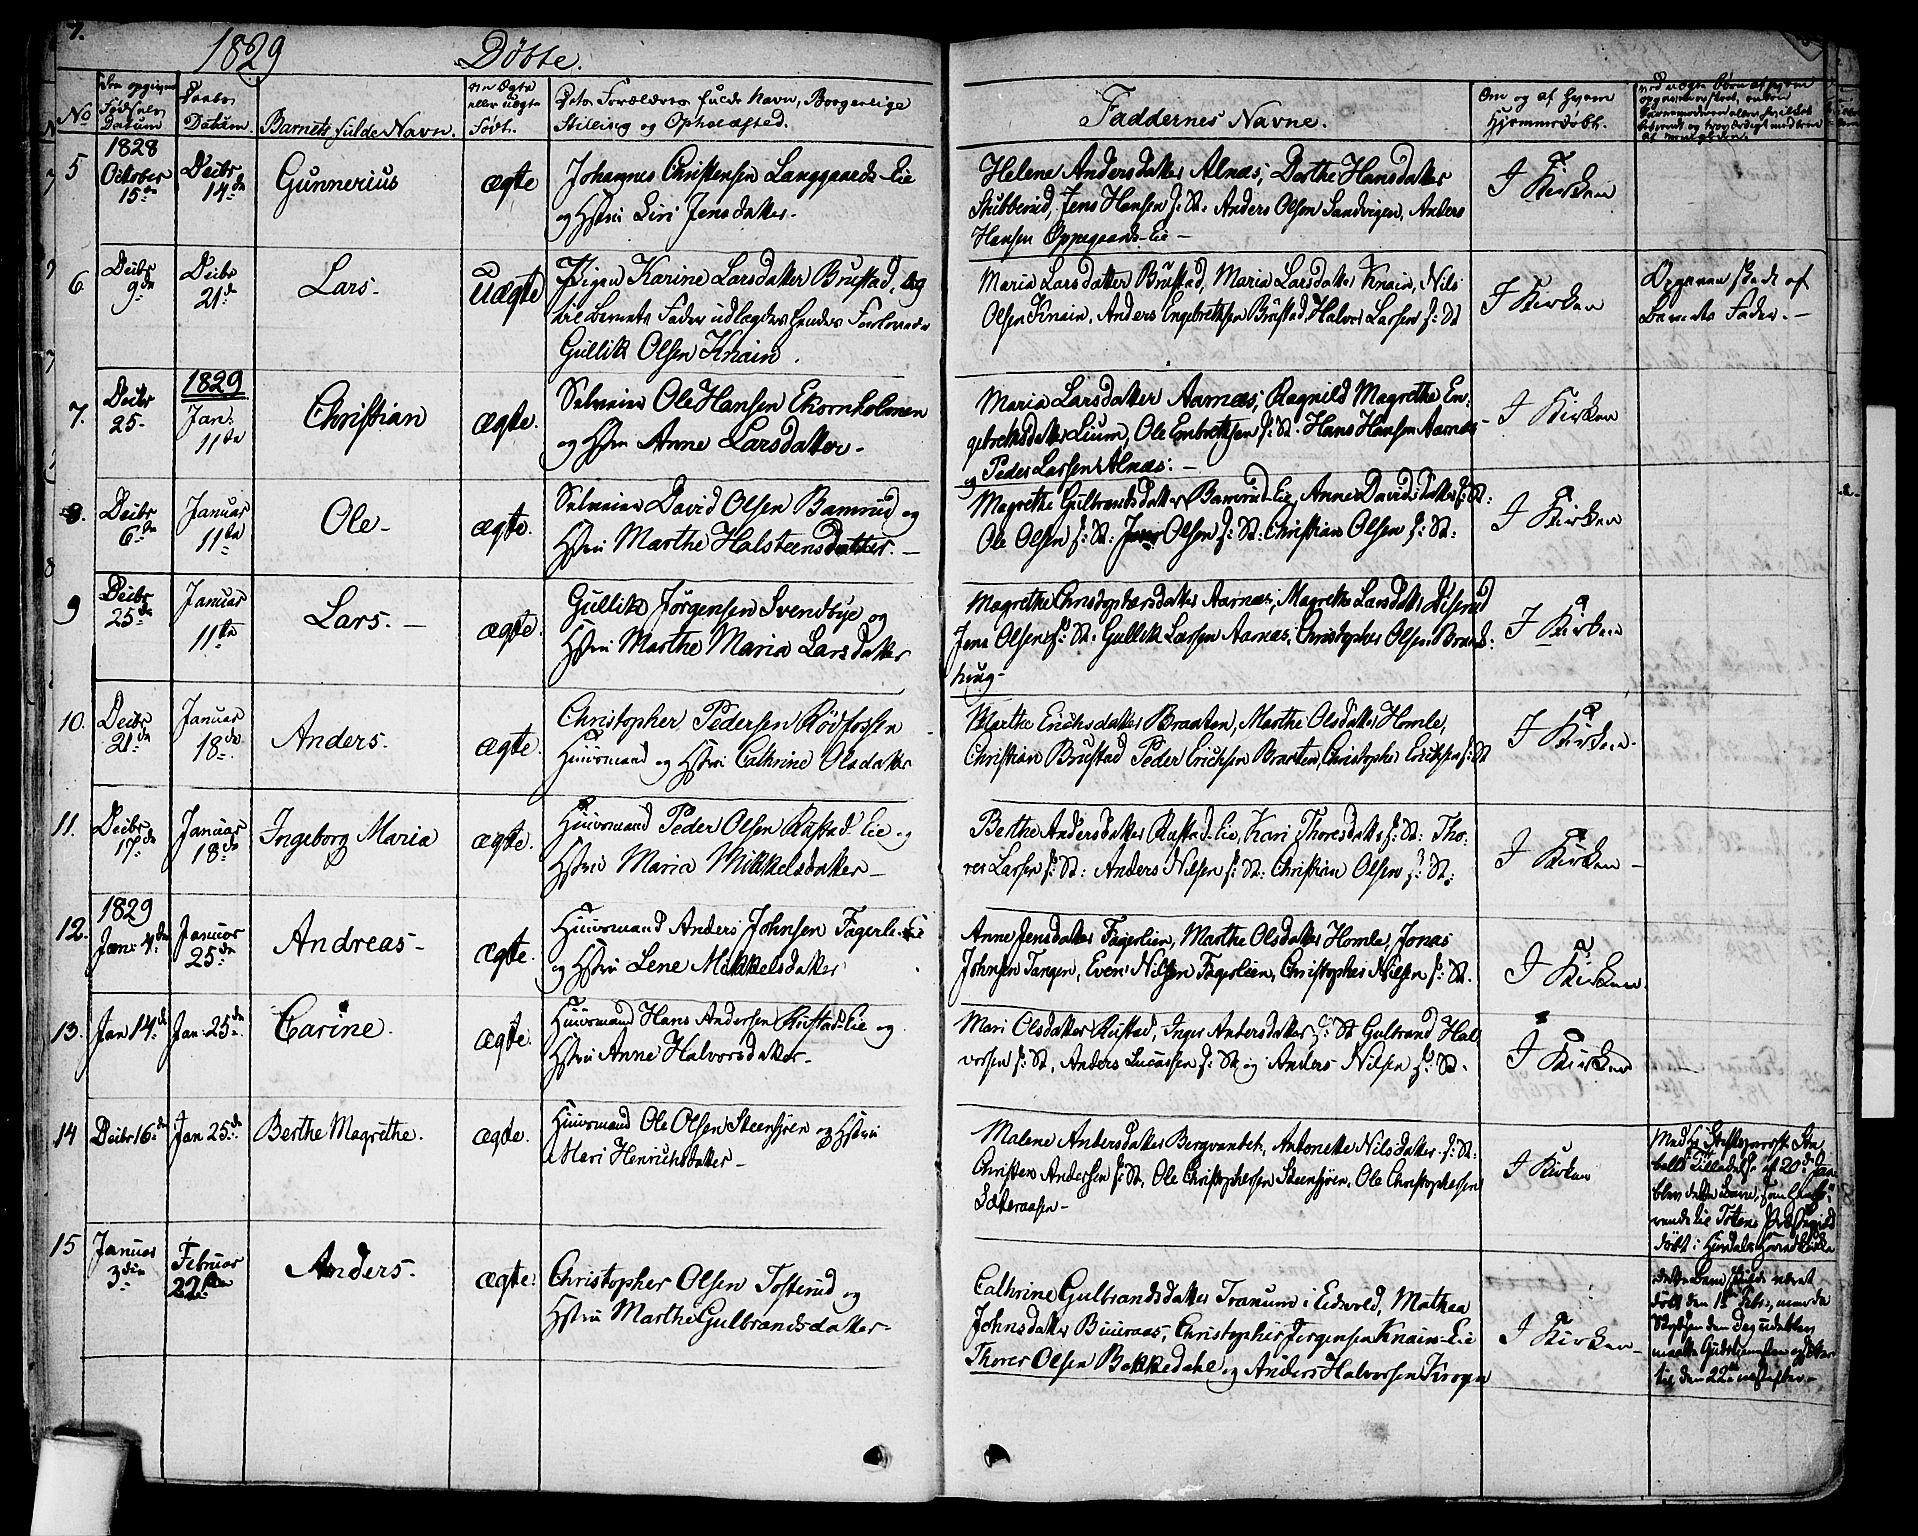 7.
1829 Døbte.
No
Den opgivne Fødsels Datum
Daabs Datum.
Barnets fulde Navn.
om Ægte eller uægte Født.
Dets Forældres fulde Navn, Borgerlige Stilling og Opholdsted.
Faddernes Navne.
Om og af hvem Hjemmedøbt.
5
1828 October 15de
Decbr 14de
Gunnerius
ægte
Johannes Christensen Langgaards-Eie
og Hstru Siri Jensdatter.
Helene Andersdatter Alnæs, Dorthe Hansdatter
Stubberud, Jens Hansen s: St: Anders Olsen Sandvigen, Anders
Hansen Oppegaards-Eie –
I Kirken
6
Decbr 9de
Decbr 21de
Lars.
Uægte
Pigen Karine Larsdatter Brustad, og
til Barnets Fader udlægdes hendes Forlovede
Gullik Olsen Knain.
Maria Larsdatter Brustad, Maria Larsdatter Knain, Nils
Olsen Knain, Anders Engebretsen Brustad, Halvor Larsen s: St
I Kirken
Opgaven skede af
Barnets Fader. –
7.
Decbr 25.
1829 Jan: 11te
Christian
ægte.
Selveier Ole Hansen Ekornholmen
og Hstru Anne Larsdatter.
Maria Larsdatter Aarnæs, Ragnild Magrethe En-
gebretsdatter Lium, Ole Embretsen s: St. Hans Hansen Aarnæs
og Peder Larsen Alnæs. –
I Kirken
8.
Decbr 6de
Januar 11te
Ole.
ægte.
Selveier David Olsen Bamrud og
Hstru Marthe Halsteensdatter. –
Magrethe Gulbrandsdatter Bamrud-Eie, Anne Davidsdatter s: St:
Ole Olsen s: St: Jens Olsen s: St: Christian Olsen s: St:
I Kirken
9
Decbr 25de
Januar 11te
Lars. –
ægte.
Gullik Jørgensen Svendbye og
Hstru Marthe Maria Larsdatter
Magrethe Christophersdatter Aarnæs, Magrethe Larsdatter
Jens Olsen s: St: Gullik Larsen Aarnæs, Christopher Olsen Brand-
haug.
I Kirken
10.
Decbr 21de
Januar 18de
Anders.
ægte.
Christopher Pedersen Rødfossen
Huusmand og Hstru Cathrine Olsdatter
Marthe Erichsdatter Braaten, Marthe Olsdatter Homle,
Christian Brustad Peder Erichsen Braaten, Christopher Erichsen s: St
I Kirken.
11.
Decbr 17de
Januar 18de
Ingeborg Maria
ægte.
Huusmand Peder Olsen Rustad-Eie og
Hstru Maria Mikkelsdatter –
Berthe Andersdatter Rustad-Eie, Kari Thoresdatter s: St: Tho-
res Larsen s: St: Anders Nilsen s: St: Christian Olsen s: St:
I Kirken –
12.
1829 Jan: 4de
Januar 25de
Andreas.
ægte.
Huusmand Anders Johnsen Fagerli-Eie
og Hstru Lene Mikkelsdatter
Anne Jensdatter Fagerlien, Marthe Olsdatter Homle, Jonas
Johnsen Tangen, Even Nilsen Fagerlien, Christopher Nilsen s: St.
I Kirken.
13.
Jan 14de
Jan 25de
Carine.
ægte.
Huusmand Hans Andersen Rustad-Eie og
Hstru Anne Halvorsdatter.
Mari Olsdatter Rustad, Inger Andersdatter s: St Gulbrand Hal
vorsen s: St, Anders Lucassen s: St, og Anders Nilsen s: St.
I Kirken
14
Decbr 16de
Jan 25de
Berthe Magrethe.
ægte.
Huusmand Ole Olsen Steensjøen og Hstru
Mari Henrichsdatter –
Malene Andersdatter Bergvandet, Antonette Nilsdatter s: St:
Christen Andersen s: St, Ole Christophersen Steensjøen, Ole Christophersen
Sæteraasen –
I Kirken
blev dette Barn, som henhø-
rende til Totens Præstegield
døbt i Hurdals Hovedkirke
15
Januar 3die
Februar 22de
Anders.
ægte.
Christopher Olsen Tosterud og
Hstru Marthe Gulbrandsdatter.
Cathrine Gulbrandsdatter Tranum i Eidsvold, Mathea
Johnsdatter Buuraas, Christopher Jørgensen Knain-Eie
Thorer Olsen Bekkedahl og Anders Halvorsen Krogen
I Kirken –
dette Barn skulde været
døbt den 15de Febr., men da
den Dag udeblev
maatte Gudstjenesten
til den 22de